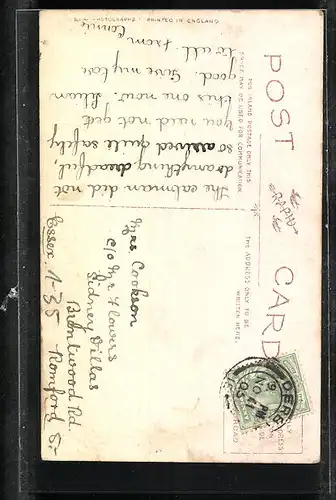 POST CARD
"RAPHO"
PRINTED IN ENGLAND
FOR INLAND POSTAGE ONLY THIS
SPACE MAY BE USED FOR COMMUNICATION
THE ADDRESS ONLY TO BE
WRITTEN HERE.
The cabman did not
do anything dreadful
so arrived quite safely
you said not get
this one now.
good. Give my love
to all. from Connie
Mrs Cookson
c/o Mr Flowers
Sidney Villas
Brentwood Rd.
Romford
Essex. 1-35
DERBY